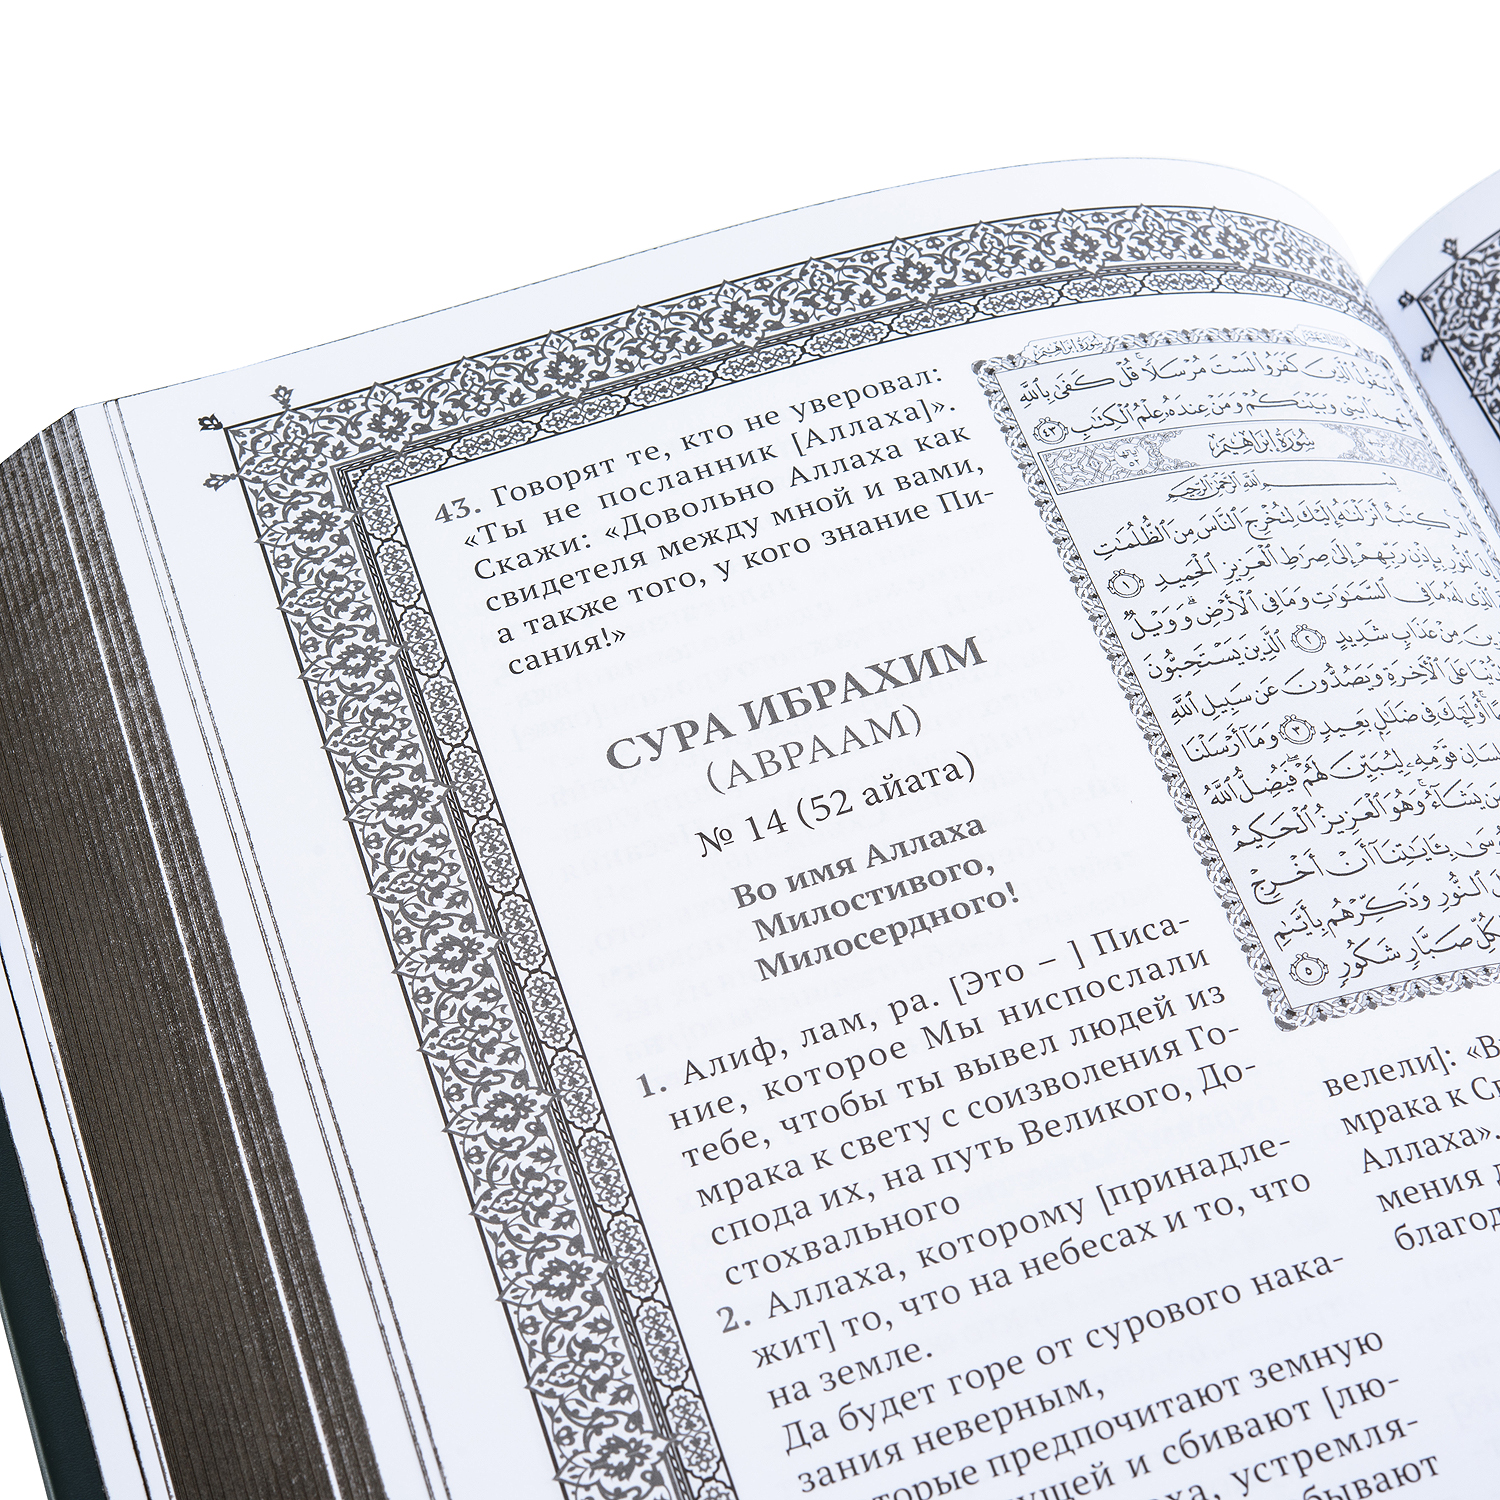 43. Говорят те, кто не уверовал:
«Ты не посланник [Аллаха]».
Скажи: «Довольно Аллаха как
свидетеля между мной и вами,
а также того, у кого знание Пи-
сания!»
СУРА ИБРАХИМ
(АВРААМ)
№ 14 (52 айата)
Во имя Аллаха
Милостивого,
Милосердного!
1. Алиф, лам, ра. [Это – ] Писа-
ние, которое Мы ниспослали
тебе, чтобы ты вывел людей из
мрака к свету с соизволения Го-
спода их, на путь Великого, До-
стохвального
2. Аллаха, которому [принадле-
жит] то, что на небесах и то, что
на земле.
Да будет горе от сурового нака-
зания неверным,
предпочитают земную
и сбивают [лю-
устремля-
سورة ابراهيم
ٱلَّذِينَ كَفَرُوا۟ لَسْتَ مُرْسَلًا ۚ قُلْ كَفَىٰ بِٱللَّهِ
بَيْنِى وَبَيْنَكُمْ وَمَنْ عِندَهُۥ عِلْمُ ٱلْكِتَٰبِ ٤٣
سورة ابراهيم
بسم الله الرحمن الرحيم
الٓر كِتَٰبٌ أَنزَلْنَٰهُ إِلَيْكَ لِتُخْرِجَ ٱلنَّاسَ مِنَ ٱلظُّلُمَٰتِ
إِلَى ٱلنُّورِ بِإِذْنِ رَبِّهِمْ إِلَىٰ صِرَٰطِ ٱلْعَزِيزِ ٱلْحَمِيدِ ١
ٱلَّذِى لَهُۥ مَا فِى ٱلسَّمَٰوَٰتِ وَمَا فِى ٱلْأَرْضِ ۗ وَوَيْلٌ
مِنْ عَذَابٍ شَدِيدٍ ٢ ٱلَّذِينَ يَسْتَحِبُّونَ
عَلَى ٱلْءَاخِرَةِ وَيَصُدُّونَ عَن سَبِيلِ ٱللَّهِ
أُو۟لَٰٓئِكَ فِى ضَلَٰلٍۭ بَعِيدٍ ٣ وَمَآ أَرْسَلْنَا
قَوْمِهِۦ لِيُبَيِّنَ لَهُمْ ۖ فَيُضِلُّ ٱللَّهُ
مَن يَشَآءُ ۚ وَهُوَ ٱلْعَزِيزُ ٱلْحَكِيمُ
بِـَٔايَٰتِنَآ أَنْ أَخْرِجْ
ٱلنُّورِ وَذَكِّرْهُم بِأَيَّىٰمِ
صَبَّارٍ شَكُورٍ ٥
велели]:
мрака к
Аллаха».
мения